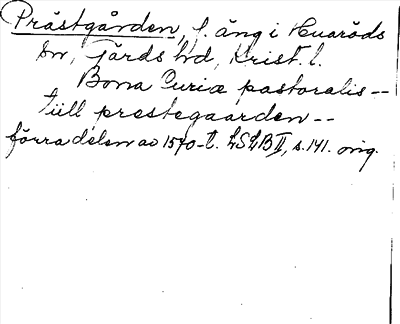 Prästgården, f. äng i Huaröds
sn, Gärds hd, Krist. l.
Bona Curiæ pastoralis --
tüll prestegaarden --
förra delen av 1570-t. LSLB II, s. 141. orig.